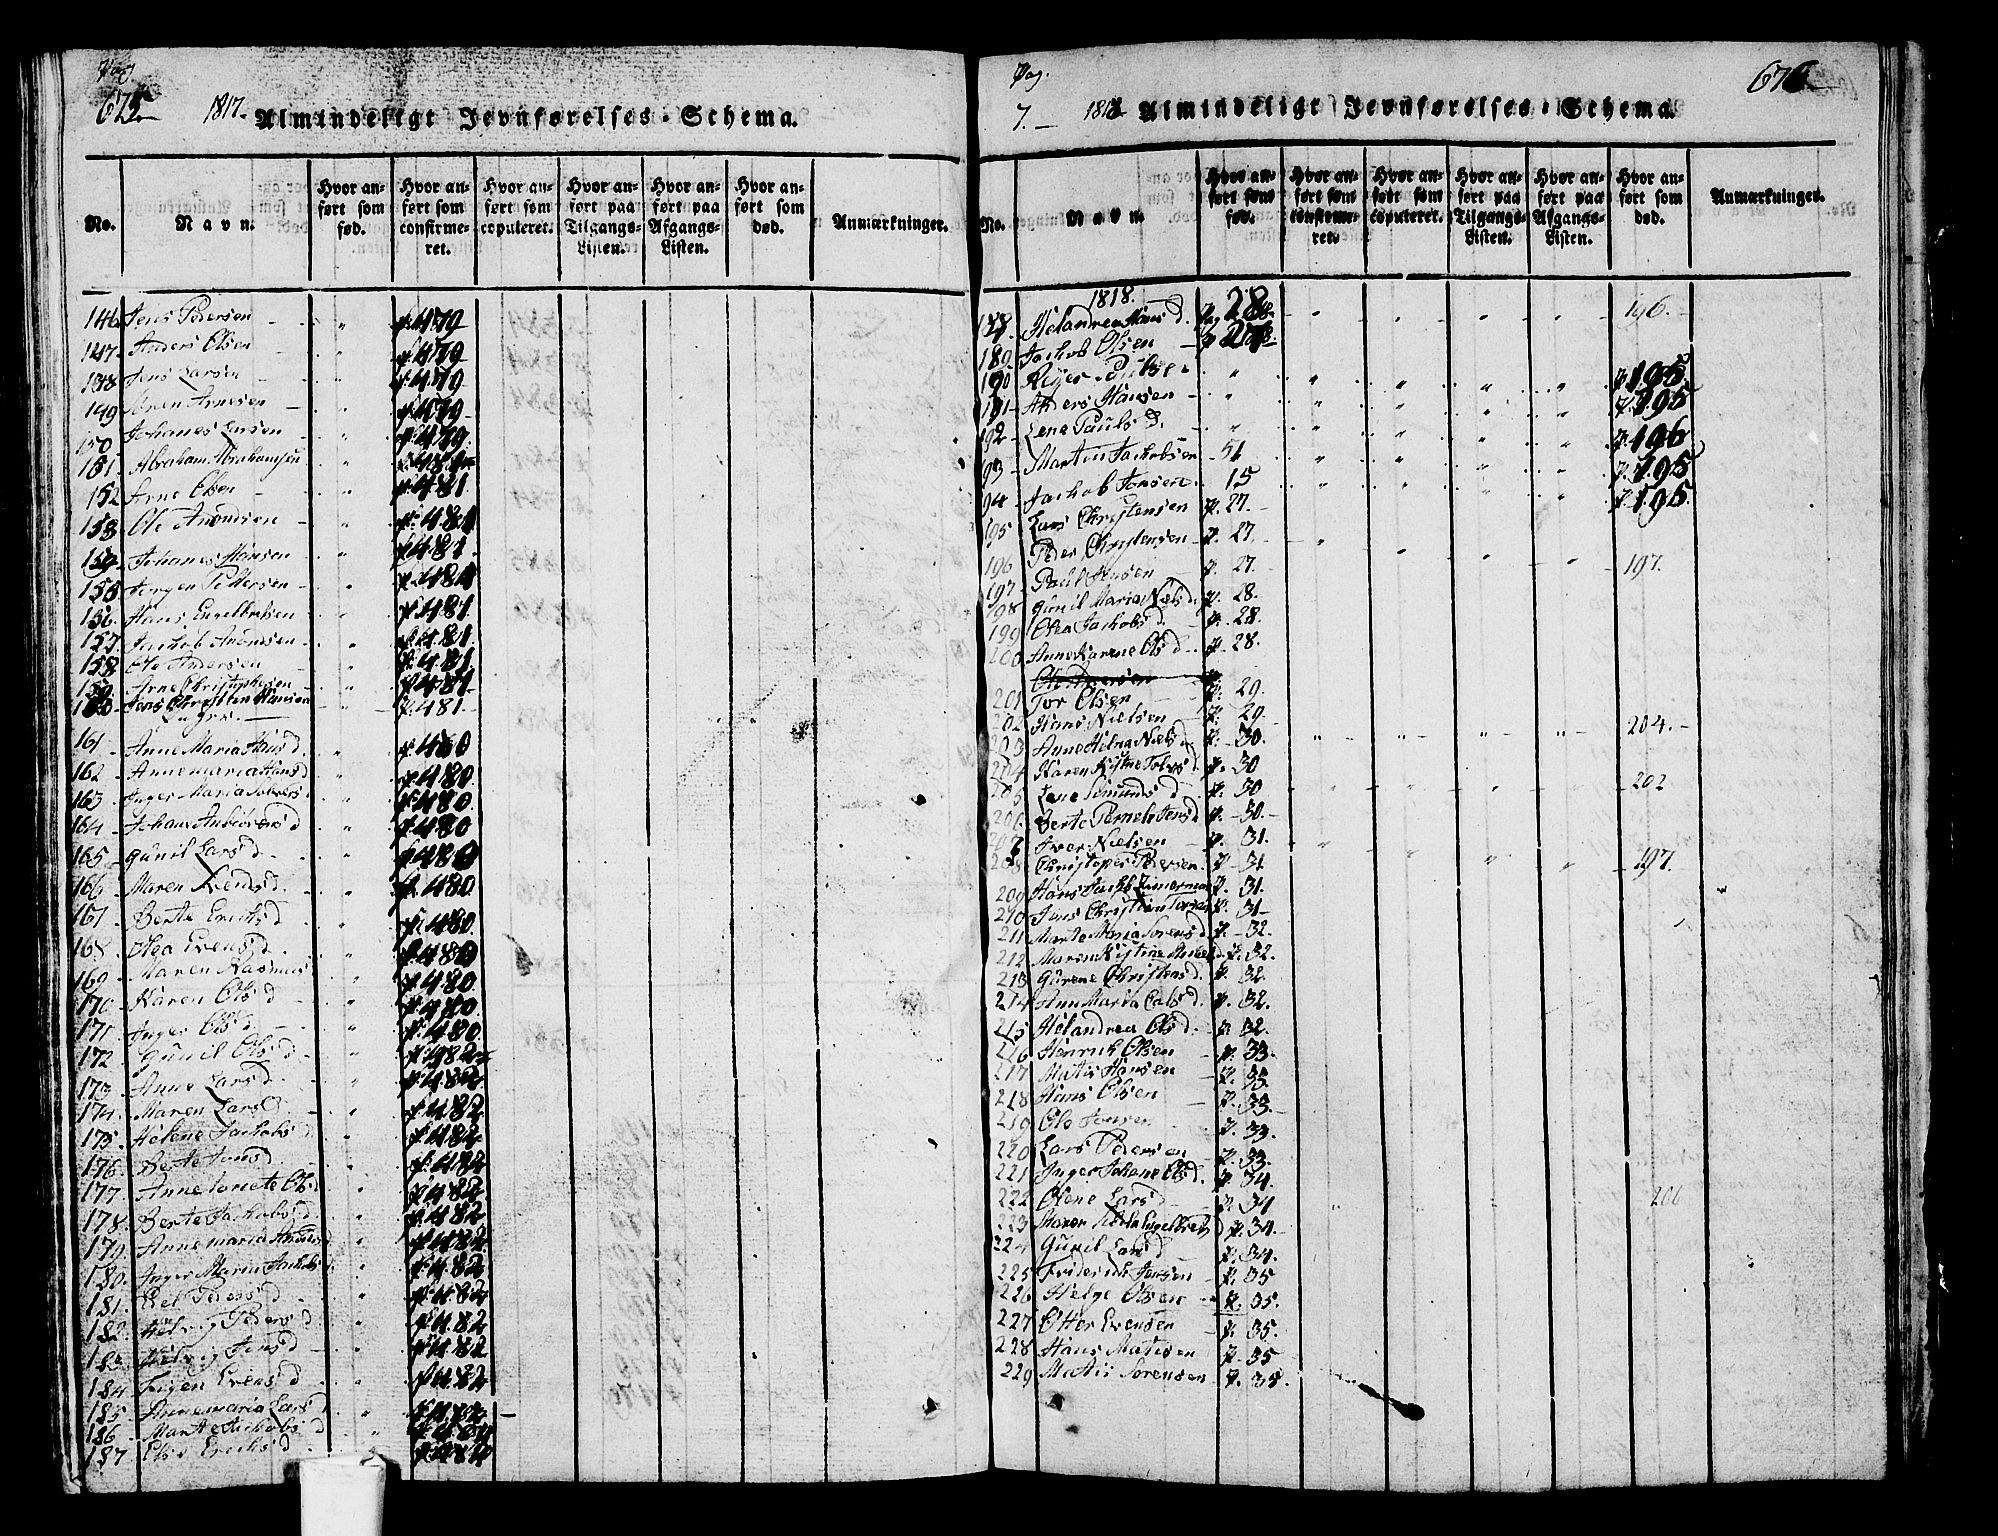 Pag
675
1817
Almindeligt Jevnførelses-Schema.
No.
Navn.
Hvor anført som fød.
Hvor anført som confirmeret.
Hvor anført som coputeret.
Hvor anført paa Tilgangs-Listen.
Hvor anført paa Afgangs-Listen.
Hvor anført som død.
Anmærkninger.
146 Jens Pedersen - " p. 479
147 Anders Olsen " p. 479
148 Jens Larsen " p. 479
149 Sören Arnesen - " p. 479
150 Johanes Larsen - " p. 479
151 Abraham Abrahamsen " p. 481
152 Arne Olsen - " p. 481
153 Ole Amundsen " p. 481
154 Johanes Hansen " p. 481
155 Jorgen Pettersen " p. 481
156 Hans Engelbretsen " p. 481
157 Jachob " p. 481
158 Ole Andersen " p. 481
159 Arne Christophersen " p. 481
160 Jens Christen Hansen p. 481
161 Anne Maria Hans d. " p. 480
162 Annemaria Hans d " p. 480
163 Inger Maria " p. 480
164 Johane d " p. 480
165 Gunil Lars d. " p. 480
166 Maren Svends d. " p. 480
167 Berte Erichs d " p. 480
168 Olea Evens d. " p. 480
169 Maren Rasmus " p. 480
170 Karen Ols d " p. 480
171 Inger Ols d - " p. 480
172 Gunil Ols d " p. 482
173 Anne Lars d. " p. 482
174 Maren Lars d. " p. 482
175 Helene Jachobs d " p. 482
176 Berte Jens d " p. 482
177 Anne Ols d " p. 482
178 Berte Jachobs d " p. 482
179 Anne maria " p. 482
180 Inger Maria Jachobs d " p. 482
181 Peders d " p. 482
182 Helvig Peders d " p. 482
183 Helvig Jens d " p. 482
184 Evens d " p. 482
185 Annemaria Lars d "
186 Marte Jachobs d " p. 484
187 Else Erichs d p. 484
Pag.
7.
1818
Almindeligt Jevnførelses-Schema.
676
No.
Navn.
Hvor anført som fød.
Hvor anført som confirmeret.
Hvor anført som coputeret.
Hvor anført paa Tilgangs-Listen.
Hvor anført paa Afgangs-Listen.
Hvor anført som død.
Anmærkninger.
1818.
188 Helandrea Hans d. Pag 28 196.
189 Jachob Olsen p. 27
190 " " " " " p. 195
191 Anders Hansen " " " " " p. 195
192 Lene Pauls d. " " " " " p. 196
193 Martin Jachobsen 51 " " " " p. 195
194 Jachob Jonsen 15 " " " " p. 195
195 Lars Christensen p. 27.
196 Peder Christensen p. 27. " " " " 197.
197 Paul Jensen p. 27.
198 Gunil Maria Niels d. p. 28.
199 Olea Jachobs d. p. 28.
200 Anne Karene Ols d p. 28.
Ole Andersen p.
201 Tor Olsen p. 29.
202 Hans Nielsen p. 29.
203 Anne Helena Niels d p. 30. " " " " 204.
204 Karen Kistine d p. 30
205 Lene d p. 30 " " " " 202
206 Berte Pernele Jens d p. 30.
207 Iver Nielsen p. 31.
208 Christopher Pedersen p. 31 " " " " 197.
209 Hans Jachb Zimerman p. 31.
210 Jens Christian p. 31
211 Marte Maria Sorens d p. 32
212 Maren Kistine p. 32.
213 Gurene Christens d. p. 32.
214 Anne Maria d p. 32.
215 Helandrea Ols d. p. 32.
216 Henrich Olsen p. 33.
217 Matis Hansen p. 33.
218 Hans Olsen p. 33.
219 Ole Jensen p. 33.
220 Lars Pedersen p. 33.
221 Inger Johane Ols d. p. 34.
222 Olene Lars d p. 34 206
223 Maren Engelbrets d p. 34.
224 Gunil Lars d p. 34.
225 Friderich Jensen p. 35
226 Helge Olsen p. 35.
227 Otter Evensen p. 35.
228 Hans Matisen p. 35
229 Matis Sorensen p. 35.